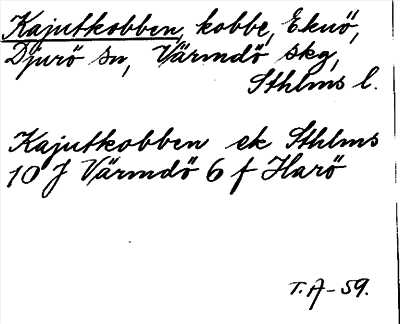 Kajutkobben, kobbe, Eknö,
Djurö sn, Värmdö skg,
Sthlms l.
Kajutkobben ek Sthlms
10 J Värmdö 6 f Harö
T. A-59.